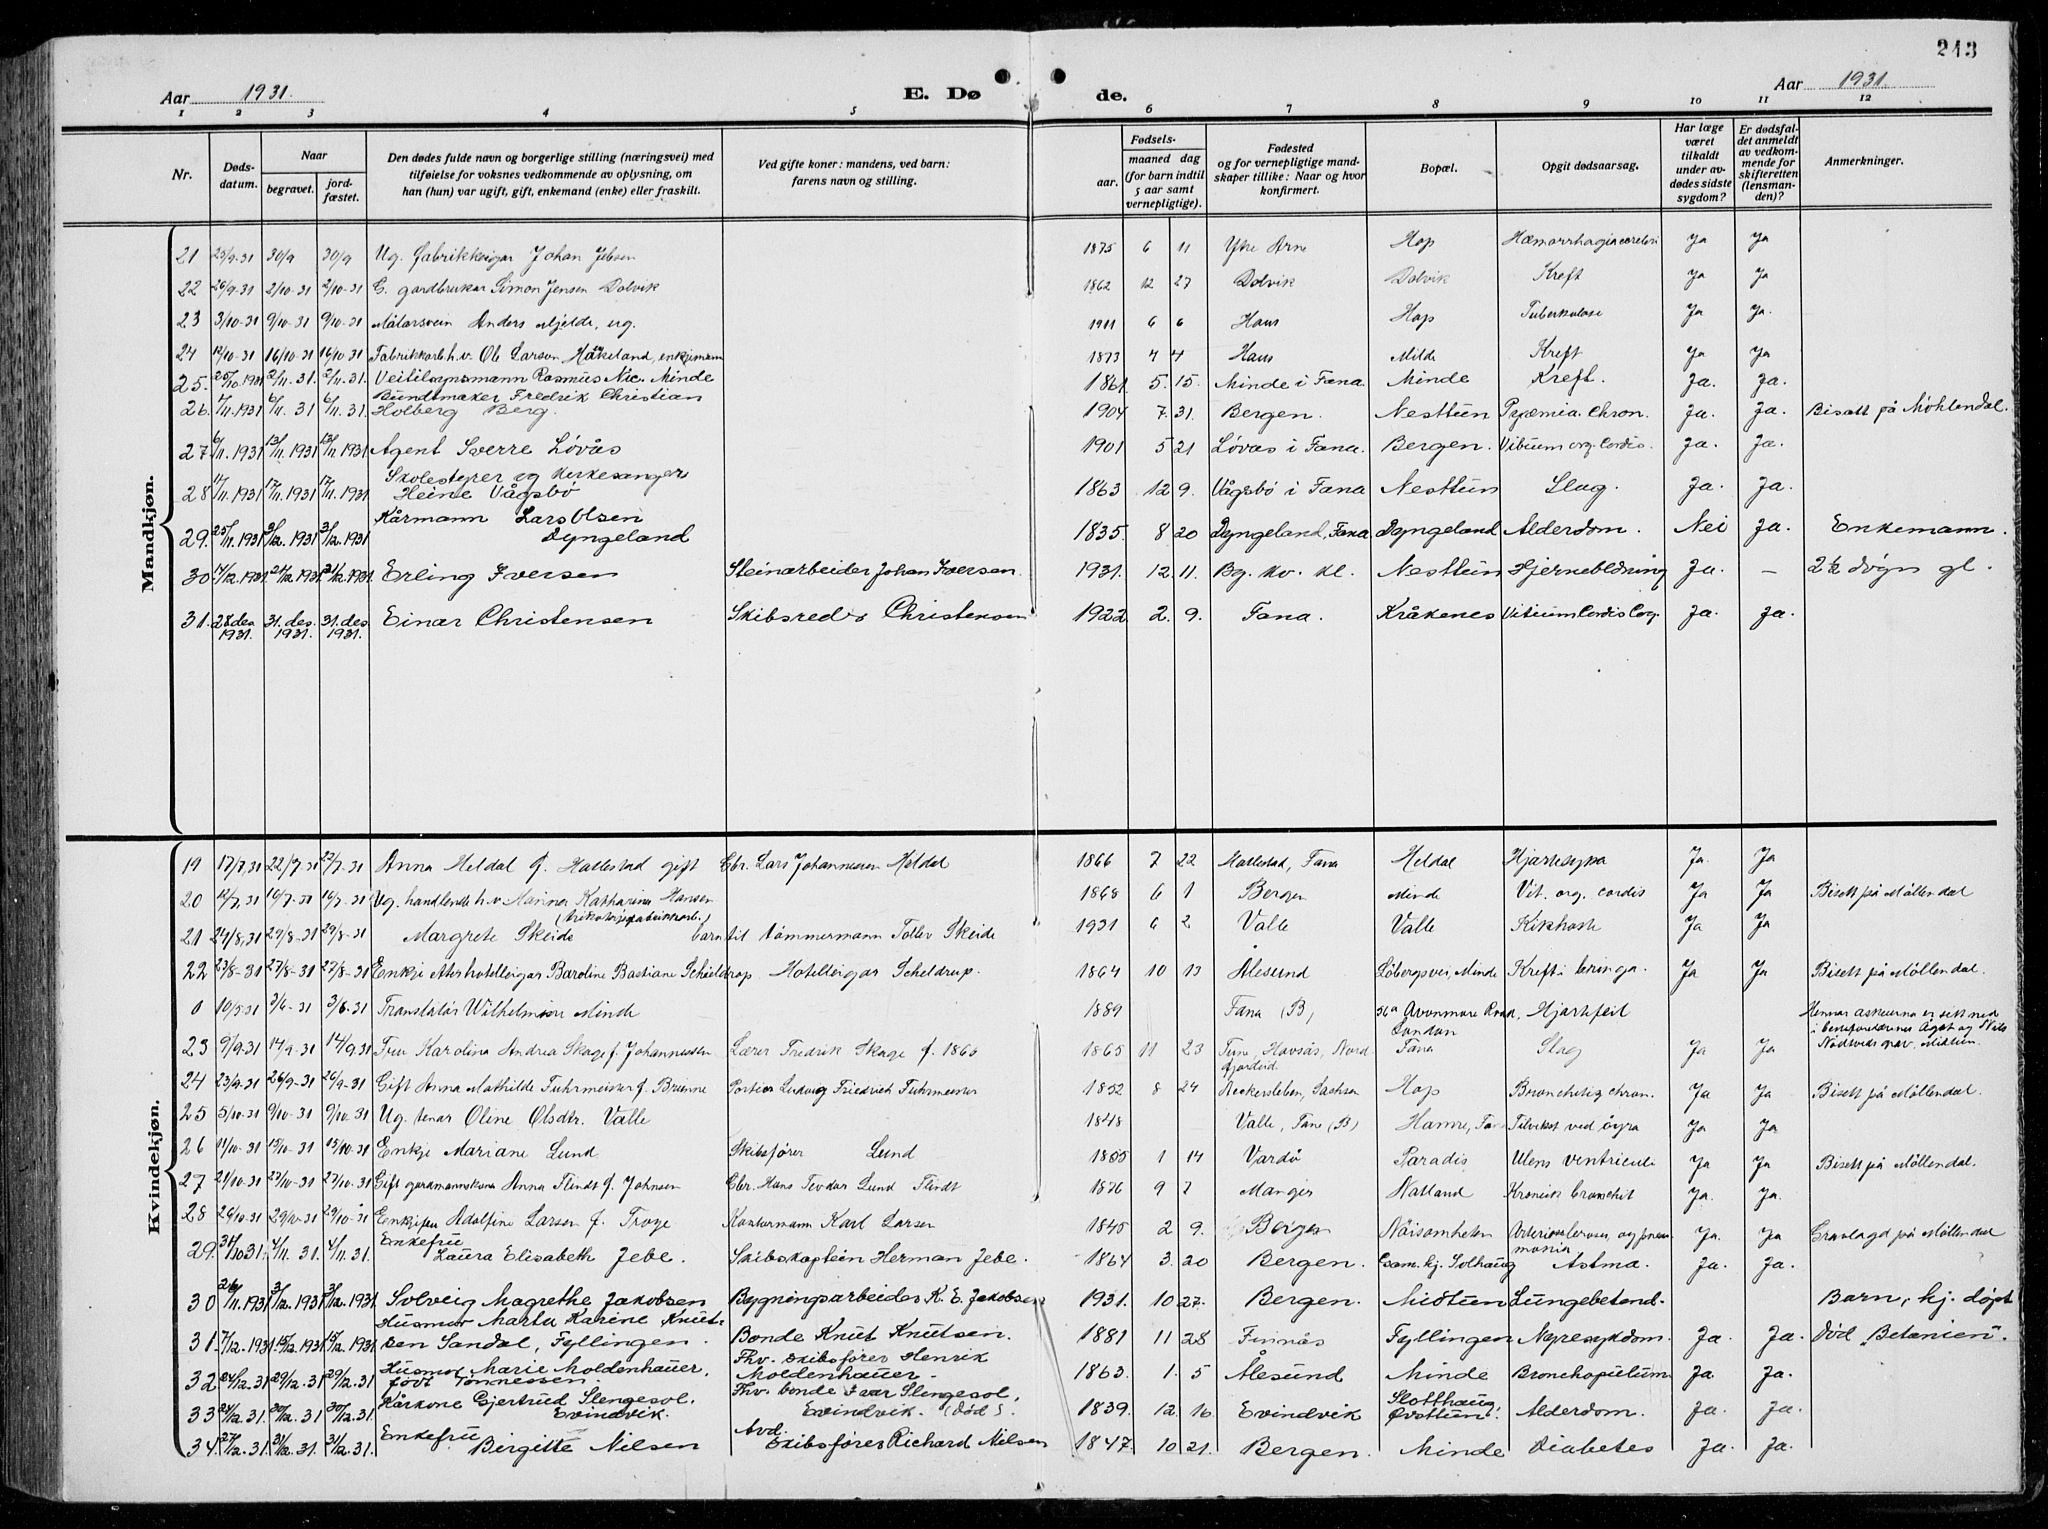 243
Aar 1931. E. Døde. Aar 1931.
1 2 3 4 5 6 7 8 9 10 11 12
Nr. Døds-datum. Naar begravet. jord-fæstet. Den dødes fulde navn og borgerlige stilling (næringsvei) med tilføielse for voksnes vedkommende av oplysning, om han (hun) var ugift, gift, enkemand (enke) eller fraskilt. Ved gifte koner: mandens, ved barn: farens navn og stilling. Fødsels- aar. maaned dag (for barn indtil 5 aar samt vernepligtige). Fødested og for vernepligtige mandskaper tillike: Naar og hvor konfirmert. Bopæl. Opgit dødsaarsag. Har læge været tilkaldt under avdødes sidste sygdom? Er dødsfaldet anmeldt av vedkommende for skifteretten (lensmanden)? Anmerkninger.
Mandkjøn.
21 25/9-31 30/9 30/9 Ug. fabrikkeigar Johan Jebsen 1875 6 11 Ytre Arne Hop Hæmorrhagia cerebri Ja Ja
22 26/9-31 2/10-31 2/10-31 G. gardbrukar Simon Jensen Dolvik 1862 12 27 Dolvik Dolvik Kreft Ja Ja
23 3/10-31 9/10-31 9/10-31 Målarsvein Anders Mjelde, ug. 1911 6 6 Haus Hop Tuberkulose Ja Ja.
24 12/10-31 16/10-31 16/10-31 Fabrikkarb.h.v. Ole Larsen Håkeland, enkjemann 1873 4 4 Haus Milde Kreft Ja Ja
25. 28/10.1931 2/11.31. 2/11.31. Rasmus Nic. Minde 1861 5. 15. Minde i Fana. Minde Kreft. Ja. Ja.
26. 1/11.1931 6/11.31 6/11.31. Buntmaker Fredrik Christian Holberg Berg. 1904 7. 31. Bergen. Nesttun Pyæmia Chron. Ja. Ja. Bisatt på Møhlendal.
27. 6/11.1931 13/11.1931 13/11.1931 Agent Sverre Løvås 1901 5 21 Løvås i Fana. Bergen. Vitium org. Cordis. Ja. Ja.
28 11/11.1931 17/11.1931 17/11.1931 Skolestyrer og kirkesanger Heine Vågsbø 1863 12 9. Vågsbø i Fana Nesttun Slag. Ja. Ja.
29. 25/11.1931 3/12.1931 3/12.1931 Kårmann Lars Olsen Dyngeland 1835. 8 20 Dyngeland, Fana Dyngeland Alderdom. Nei Ja. Enkemann.
30. 14/12.1931. 21/12.1931. 21/12.1931. Erling Iversen Steinarbeider Johan Iversen. 1931. 12. 11. Bg. kv. kl. Nesttun Hjernebldning Ja. – 2½ døgn gl.
31. 28 des 1931. 31. des. 1931. 31. des 1931. Einar Christensen Skibsreder Christensen 1922 2. 9. Fana. Kråkenes Vitium Cordis Cog. Ja. Ja.
Kvindekjøn.
19 17/7.31 22/7-31 22/7-31 Anna Meldal f. Hallestad gift Gbr. Lars Johannessen Meldal 1866 7 22 Hallestad, Fana Meldal Hjartesyka Ja. Ja
20 12/7.31 16/7-31 16/7-31 Ug. handlende h.v. Marina Katharina Hansen 1868 6 1 Bergen Minde Vit. org. cordis Ja Ja Bisett på Møllendal
21 24/8.31 29/8-31 29/8-31 Margrete Skeide barn til tømmermann Tollev Skeide 1931 6 2 Valle Valle Kikhoste Ja Ja
22 23/8-31 27/8-31 27/8-31 Enkje etter hotelleigar Baroline Bastiane Scheldrup Hotelleigar Scheldrup. 1864 10 13 Ålesund Løbergsvei, Minde Kreft i bringa. Ja Ja Bisett på Møllendal.
0 10/5.31 3/6-31 3/6.31 Translatør Wilhelmine Minde 1889 Fana (B) 56a Avonmore Road, London Hjartefeil Hennar askeurna er sett ned i besteforeldrenes Ågot og Nils Nødtvedts grav. Midtun.
23 9/9.31 14/9-31 14/9.31 Fru Karolina Andrea Skage f. Johannessen Lærer Fredrik Skage f. 1865 1865 11 23 Havsås, Nordfjordeid. Fana Slag Ja Ja
24 23/9-31 26/9-31 26/9-31 Gift Anna Mathilde Fuhrmeister f. Brunne Portier Ludvig Friedrich Fuhrmeister 1852 8 24 Neckersleben, Sachsen Hop Bronchitis chron. Ja Ja Bisett på Møllendal.
25 5/10-31 9/10-31 9/10.31 Ug. tenar Oline Olsdtr. Valle 1848 Valle, Fane (B) Hamre, Fana Tilvekst ved øyra Ja Ja
26 11/10-31 15/10-31 15/10.31 Enkje Mariane Lund Skibsfører Lund 1855 1 14 Vardø Paradis Ulcus ventriculi Ja Ja Bisett på Møllendal.
27 21/10.31 27/10-31 27/10.31 Gift gardmannskona Anna Flindt f. Johnsen Gbr. Hans Teodor Lund Flindt 1876 9 7 Manger Natland Kronisk bronchit Ja. Ja.
28 26/10.31 29/10-31 29/10-31 Enkjefru Adolfine Larsen f. Troye Kontormann Karl Larsen 1845 2 9. Bergen Nøisomheten Arteriosclerose, og pneumonia Ja. Ja Gravlagd på Møllendal
29. 31/10 31. 4/11. 31. 4/11. 31. Enkefru Laura Elisabeth Jebe. Skibskaptein Herman Jebe. 1864 3. 20 Bergen. Gam.hj. Solhaug Astma. Ja. Ja.
30 26/11.1931 3/12.1931 3/12.1931. Solveig Magrethe Jakobsen Bygningsarbeider K. E. Jakobsen 1931. 10 27. Bergen. Midtun Lungebetend- Barn, kj. døpt
31. 7/12.1931 15/12.1931 15/12.1931 Husmor Marta Karine Knutsen Sandal, Fyllingen. Bonde Knut Knutsen. 1881 11 28 Finnås Fyllingen Nyresykdom. Ja. Ja. Død "Betanien".
32 24/12.31 29/12.31 29/12.31 Husmor Marie Moldenhauer, født Tønnessen. Fhv. skibsfører Henrik Moldenhauer. 1863. 1. 5 Ålesund Minde Ja Ja.
33 24/12.31. 30/12.31 30/12.31. Kårkone Gjertrud Slengesol. Evindvik. Fhv. bonde Ivar Slengesol, Evindvik. (død). 1839. 12. 16 Evindvik Slotthaug, Øvsttun. Alderdom. Ja. Ja.
34. 27/12.31. 31/12.31. 31/12.31. Enkefru Birgitte Nilsen Avd. Skibsfører Richard Nilsen 1847. 10 21. Bergen. Minde Diabetes Ja. Ja.